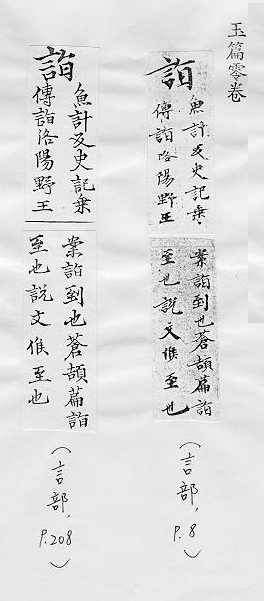 玉篇零卷
詣
魚計反史記乗
傳詣洛陽野王
案詣到也蒼頡萹詣
至也說文俟至也
(言部,
P.8)
詣
魚計反史記乗
傳詣洛陽野王
案詣到也蒼頡萹詣
至也說文俟至也
(言部,
P.208)